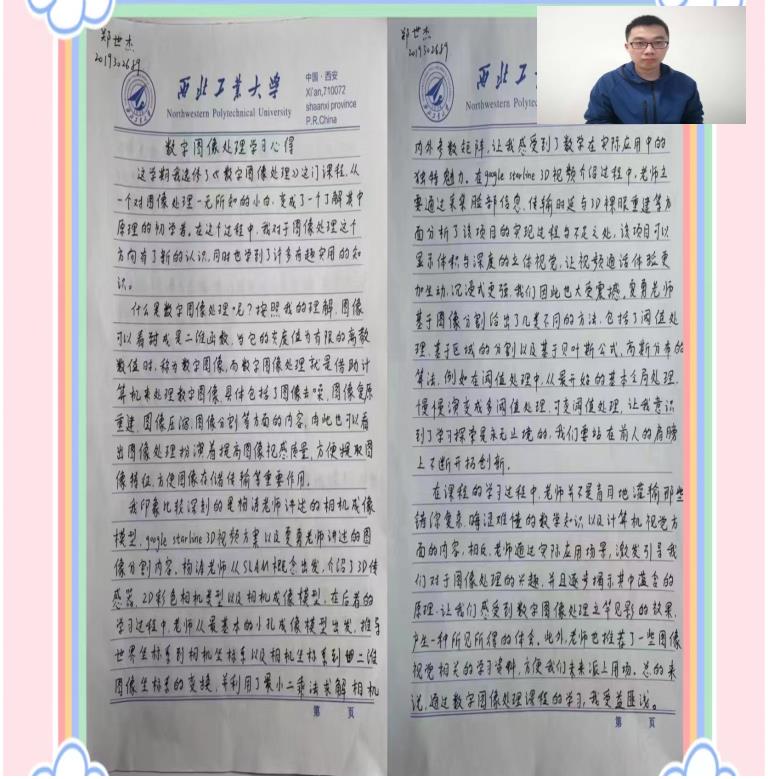 郑世杰
2019302689
西北工业大学
Northwestern Polytechnical University
中国·西安
Xi'an,710072
shaanxi province
P.R.China
数字图像处理学习心得
这学期我选修了《数字图像处理》这门课程,从
一个对图像处理一无所知的小白,变成了一个了解其中
原理的初学者。在这个过程中,我对于图像处理这个
方向有了新的认识,同时也学到了许多有趣实用的知
识。
什么是数字图像处理呢?按照我的理解,图像
可以看成是二维函数,当它的灰度值为有限的离散
数值时,称为数字图像,而数字图像处理就是借助计
算机来处理数字图像,具体包括了图像去噪、图像复原
重建、图像压缩、图像分割等方面的内容,由此也可以看
出图像处理扮演着提高图像视感质量,方便提取图
像特征,方便图像存储传输等重要作用。
我印象比较深刻的是杨涛老师讲述的相机成像
模型、google starline 3D视频方案以及夏勇老师讲述的图
像分割内容。杨涛老师从SLAM概念出发,介绍了3D传
感器、2D彩色相机类型以及相机成像模型,在后者的
学习过程中,老师从最基本的小孔成像模型出发,推导
世界坐标系到相机坐标系以及相机坐标系到二维
图像坐标系的变换,并利用了最小二乘法求解相机
第 页
郑世杰
2019302689
西北工业大学
Northwestern Polytec
内外参数矩阵,让我感受到了数学在实际应用中的
独特魅力。在google starline 3D视频介绍过程中,老师主
要通过采集脸部信息、传输时延与3D裸眼重建等方
面分析了该项目的实现过程与不足之处,该项目可以
显示体积与深度的立体视觉,让视频通话体验更
加生动,沉浸式更强,我们因此也大受震撼。夏勇老师
基于图像分割给出了几类不同的方法,包括了阈值处
理、基于区域的分割以及基于贝叶斯公式、高斯分布的
算法,例如在阈值处理中,从最开始的基本全局处理,
慢慢演变成多阈值处理、可变阈值处理,让我意识
到了学习探索是永无止境的,我们要站在前人的肩膀
上不断开拓创新。
在课程的学习过程中,老师并不是盲目地灌输那些
错综复杂、晦涩难懂的数学知识以及计算机视觉方
面的内容,相反,老师通过实际应用场景,激发引导我
们对于图像处理的兴趣,并且逐步揭示其中蕴含的
原理,让我们感受到数字图像处理立竿见影的效果,
产生一种所见所得的体会。此外,老师也推荐了一些图像
视觉相关的学习资料,方便我们未来派上用场。总的来
说,通过数字图像处理课程的学习,我受益匪浅。
第 页